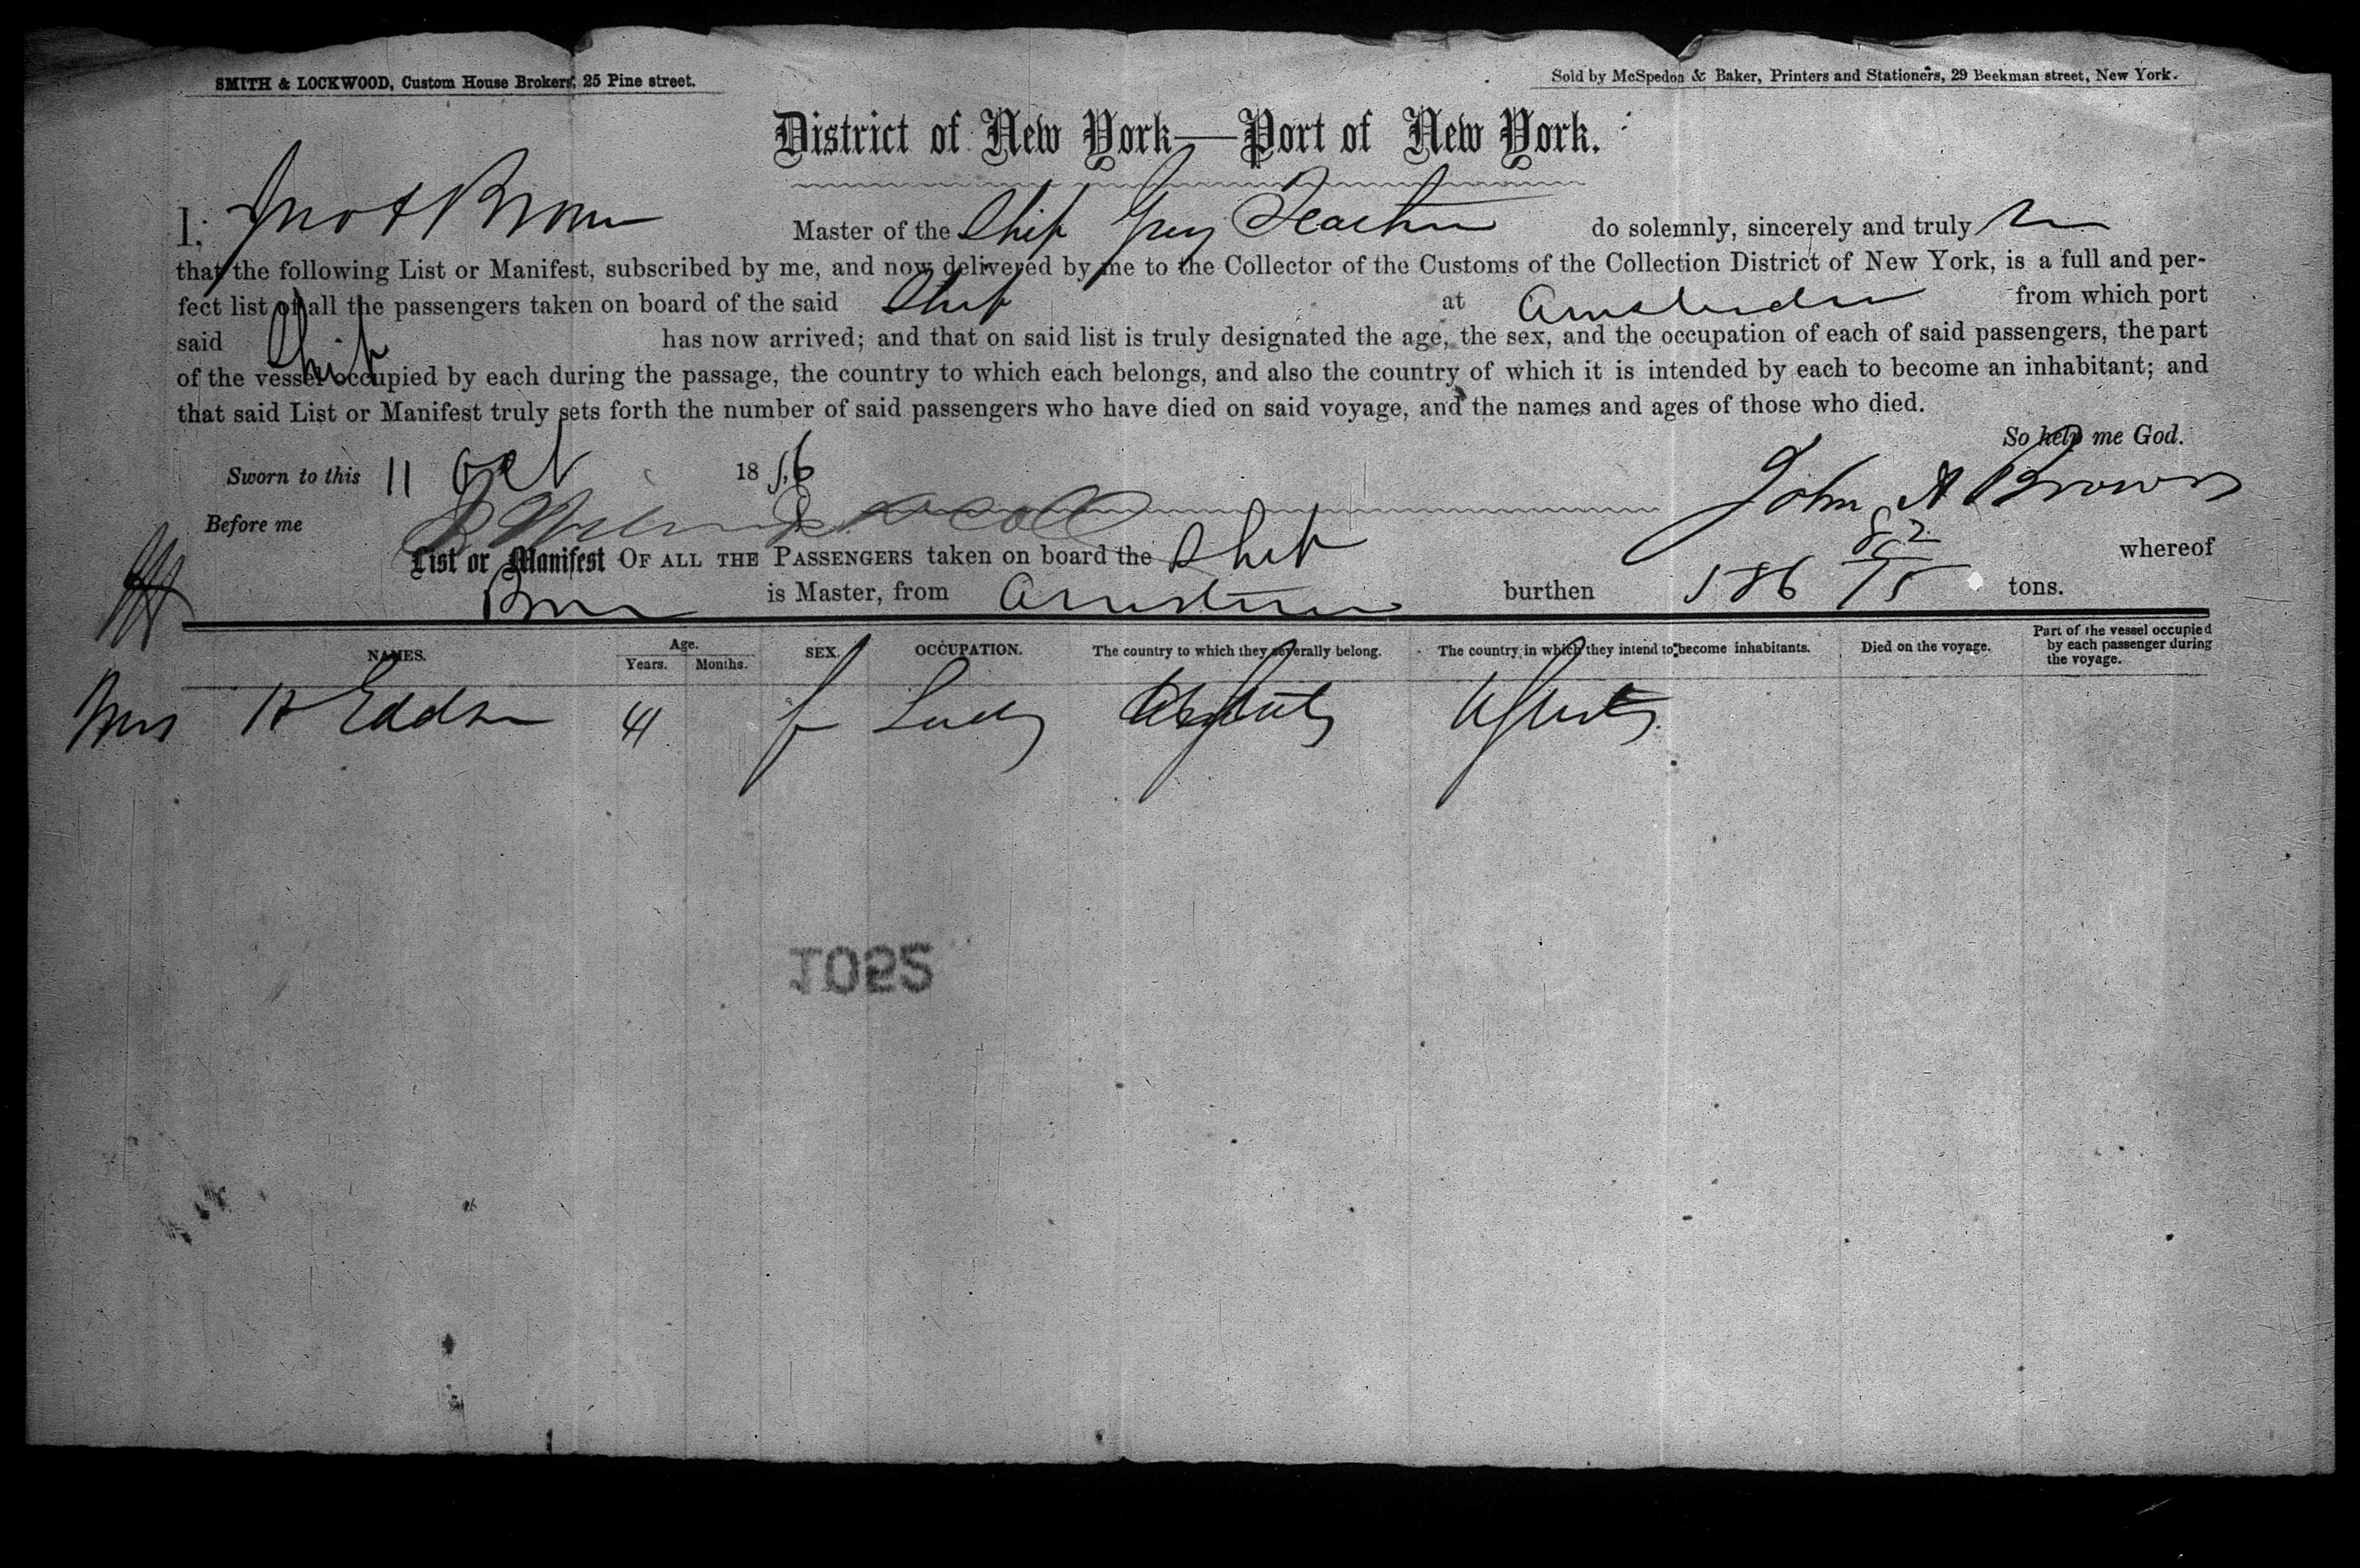 SMITH & LOCKWOOD, Custom House Brokers, 25 Pine street.
Sold by McSpedon & Baker, Printers and Stationers, 29 Beekman street, New York.
District of New York—Port of New York.
I, Jno A Brown Master of the Ship Grey Feather do solemnly, sincerely and truly
that the following List or Manifest, subscribed by me, and now delivered by me to the Collector of the Customs of the Collection District of New York, is a full and per-
fect list of all the passengers taken on board of the said Ship at Amsterdam from which port
said Ship has now arrived; and that on said list is truly designated the age, the sex, and the occupation of each of said passengers, the part
of the vessel occupied by each during the passage, the country to which each belongs, and also the country of which it is intended by each to become an inhabitant; and
that said List or Manifest truly sets forth the number of said passengers who have died on said voyage, and the names and ages of those who died.
So help me God.
Sworn to this 11 Oct 1856
John A Brown
Before me
List or Manifest OF ALL THE PASSENGERS taken on board the Ship whereof
Brown is Master, from Amsterdam burthen 586 82/95 tons.
NAMES. Age. Years. Months. SEX. OCCUPATION. The country to which they severally belong. The country in which they intend to become inhabitants. Died on the voyage. Part of the vessel occupied by each passenger during the voyage.
Mrs H 41 f Lady U States U States
1052